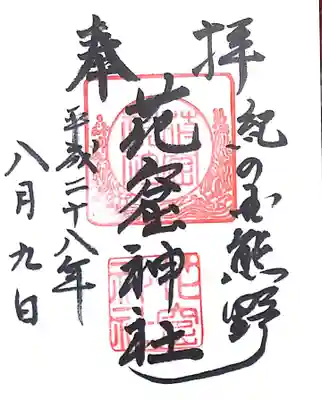 奉拝
紀の国熊野
花窟神社
平成二十八年
八月九日